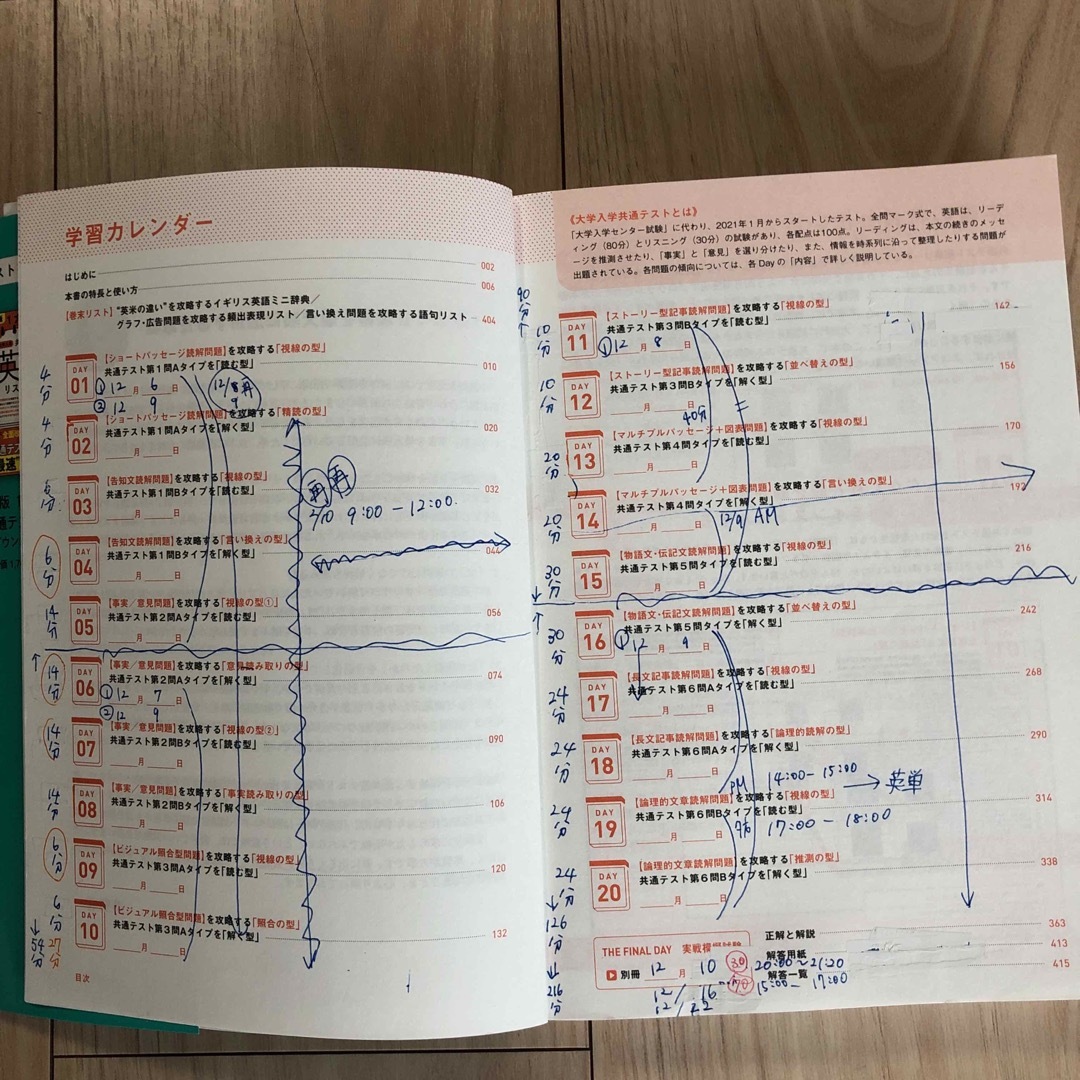 学習カレンダー
はじめに 002
本書の特長と使い方 006
【巻末リスト】"英米の違い"を攻略するイギリス英語ミニ辞典/
グラフ・広告問題を攻略する頻出表現リスト/言い換え問題を攻略する語句リスト 404
4分
DAY 01
【ショートパッセージ読解問題】を攻略する「視線の型」
共通テスト第1問Aタイプを「読む型」 010
① 12月 6日
② 12 9
12/8再
9
4分
DAY 02
【ショートパッセージ読解問題】を攻略する「精読の型」
共通テスト第1問Aタイプを「解く型」 020
月 日
6分
DAY 03
【告知文読解問題】を攻略する「視線の型」
共通テスト第1問Bタイプを「読む型」 032
月 日
再 再
2/10 9:00-12:00.
6分
DAY 04
【告知文読解問題】を攻略する「言い換えの型」
共通テスト第1問Bタイプを「解く型」 044
月 日
14分
DAY 05
【事実/意見問題】を攻略する「視線の型①」
共通テスト第2問Aタイプを「読む型」 056
月 日
14分
DAY 06
【事実/意見問題】を攻略する「意見読み取りの型」
共通テスト第2問Aタイプを「解く型」 074
① 12月 7日
② 12 9
14分
DAY 07
【事実/意見問題】を攻略する「視線の型②」
共通テスト第2問Bタイプを「読む型」 090
月 日
14分
DAY 08
【事実/意見問題】を攻略する「事実読み取りの型」
共通テスト第2問Bタイプを「解く型」 106
月 日
6分
DAY 09
【ビジュアル照合型問題】を攻略する「視線の型」
共通テスト第3問Aタイプを「読む型」 120
月 日
6分
DAY 10
【ビジュアル照合型問題】を攻略する「照合の型」
共通テスト第3問Aタイプを「解く型」 132
月 日
↓54分 27分
目次
《大学入学共通テストとは》
「大学入学センター試験」に代わり、2021年1月からスタートしたテスト。全問マーク式で、英語は、リーデ
ィング(80分)とリスニング(30分)の試験があり、各配点は100点。リーディングは、本文の続きのメッセ
ージを推測させたり、「事実」と「意見」を選り分けたり、また、情報を時系列に沿って整理したりする問題が
出題されている。各問題の傾向については、各Dayの「内容」で詳しく説明している。
90分↑
10分
DAY 11
【ストーリー型記事読解問題】を攻略する「視線の型」
共通テスト第3問Bタイプを「読む型」 142
① 12月 8日
10分
DAY 12
【ストーリー型記事読解問題】を攻略する「並べ替えの型」
共通テスト第3問Bタイプを「解く型」 156
月 日
40分
20分
DAY 13
【マルチプルパッセージ+図表問題】を攻略する「視線の型」
共通テスト第4問タイプを「読む型」 170
月 日
20分
DAY 14
【マルチプルパッセージ+図表問題】を攻略する「言い換えの型」
共通テスト第4問タイプを「解く型」 192
月 日 12/9 AM
30分
DAY 15
【物語文・伝記文読解問題】を攻略する「視線の型」
共通テスト第5問タイプを「読む型」 216
月 日
30分
DAY 16
【物語文・伝記文読解問題】を攻略する「並べ替えの型」
共通テスト第5問タイプを「解く型」 242
① 12月 9日
24分
DAY 17
【長文記事読解問題】を攻略する「視線の型」
共通テスト第6問Aタイプを「読む型」 268
月 日
24分
DAY 18
【長文記事読解問題】を攻略する「論理的読解の型」
共通テスト第6問Aタイプを「解く型」 290
月 日 PM 14:00-15:00 → 英単
24分
DAY 19
【論理的文章読解問題】を攻略する「視線の型」
共通テスト第6問Bタイプを「読む型」 314
月 日 17:00-18:00
24分
DAY 20
【論理的文章読解問題】を攻略する「推測の型」
共通テスト第6問Bタイプを「解く型」 338
月 日
↓126分
THE FINAL DAY 実戦模擬試験
別冊 12月 10 30 20:00~21:20
12/16 70 15:00-17:00
12/22
↓216分
正解と解説 363
解答用紙 413
解答一覧 415